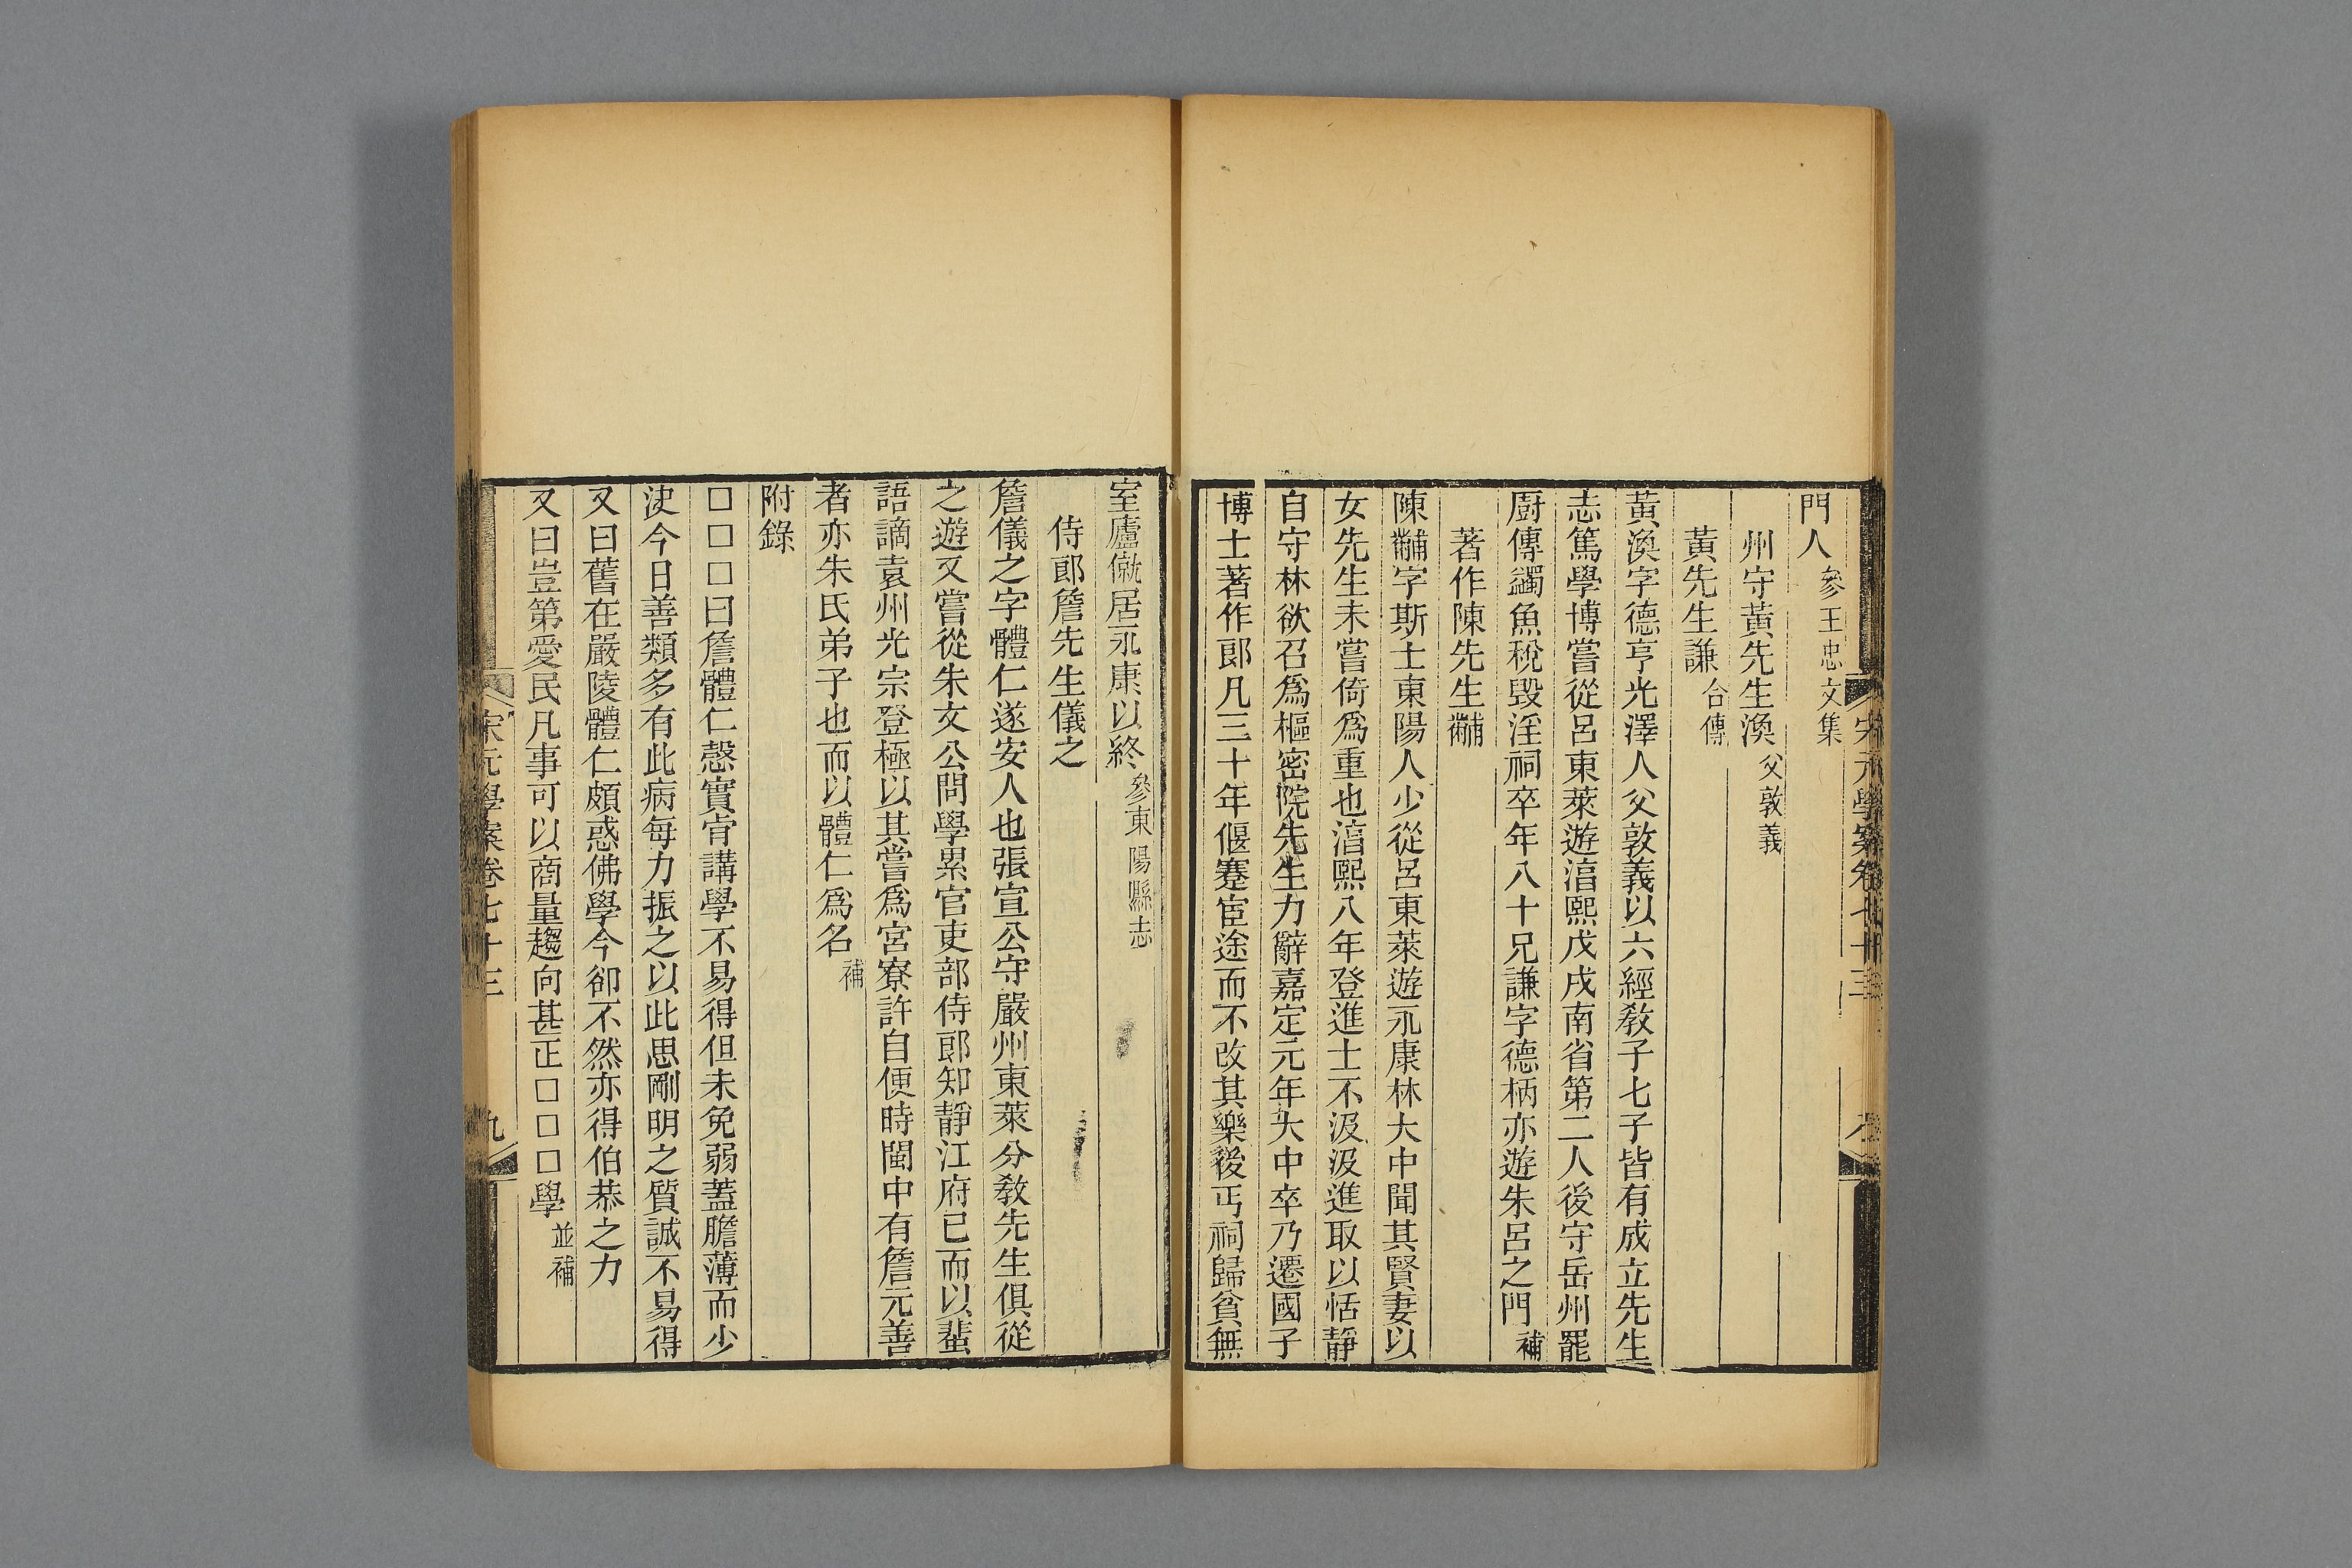 門人參王忠文集
州守黃先生渙父敦義
黃先生謙合傳
黃渙字德亨光澤人父敦義以六經敎子七子皆有成立先生
志篤學博嘗從呂東萊遊湻熙戊戌南省第二人後守岳州罷
廚傳蠲魚稅毀淫祠卒年八十兄謙字德柄亦遊朱呂之門補
著作陳先生黼
陳黼字斯士東陽人少從呂東萊遊永康林大中聞其賢妻以
女先生未嘗倚爲重也湻熙八年登進士不汲汲進取以恬靜
自守林欲召爲樞密院先生力辭嘉定元年大中卒乃遷國子
博士著作郎凡三十年偃蹇宦途而不改其樂後丐祠歸貧無
室廬僦居永康以終參東陽縣志
侍郎詹先生儀之
詹儀之字體仁遂安人也張宣公守嚴州東萊分敎先生俱從
之遊又嘗從朱文公問學累官吏部侍郎知靜江府已而以蜚
語謫袁州光宗登極以其嘗爲宮寮許自便時閩中有詹元善
者亦朱氏弟子也而以體仁爲名補
附錄
□□□曰詹體仁慤實肯講學不易得但未免弱蓋膽薄而少
決今日善類多有此病每力振之以此思剛明之質誠不易得
又曰舊在嚴陵體仁頗惑佛學今卻不然亦得伯恭之力
又曰豈第愛民凡事可以商量趨向甚正□□□學並補
宋元學案卷七十三
九